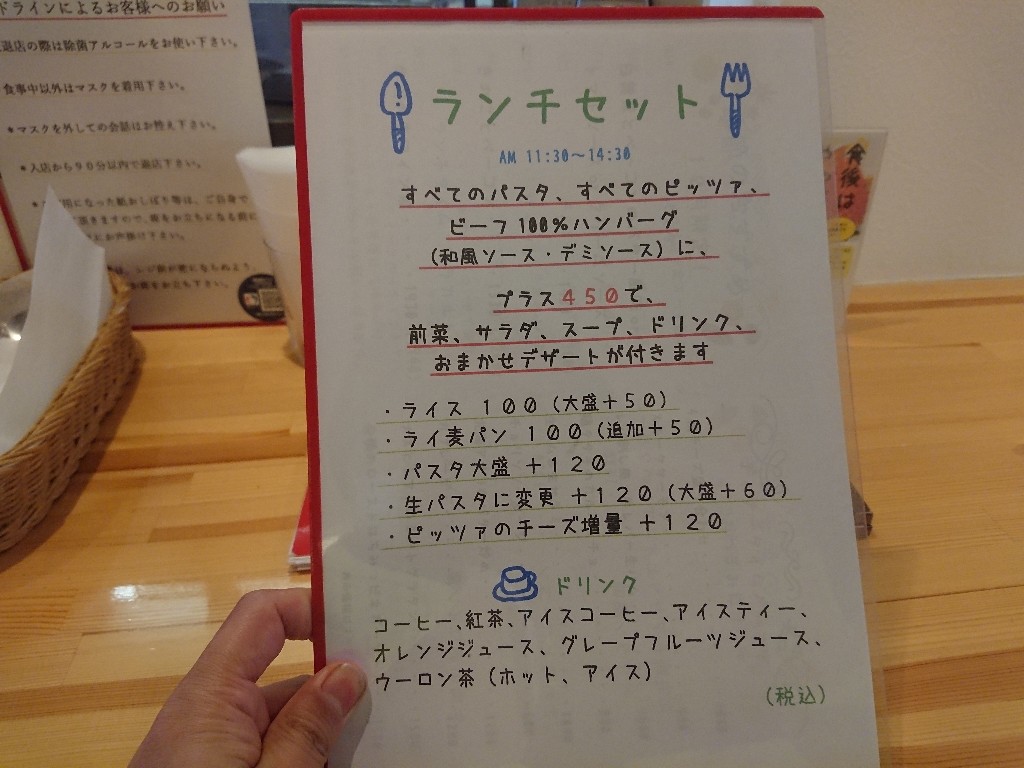 ドラインによるお客様へのお願い
退店の際は除菌アルコールをお使い下さい。
食事中以外はマスクを着用下さい。
●マスクを外しての会話はお控え下さい。
●入店から90分以内で退店下さい。
になった紙おしぼり等は、ご自身で
きますので、席をお立ちになる前に
お声掛け下さい。
食後は
ランチセット
AM 11:30～14:30
すべてのパスタ、すべてのピッツァ、
ビーフ100%ハンバーグ
(和風ソース・デミソース)に、
プラス450で、
前菜、サラダ、スープ、ドリンク、
おまかせデザートが付きます
・ライス 100(大盛+50)
・ライ麦パン 100(追加+50)
・パスタ大盛 +120
・生パスタに変更 +120(大盛+60)
・ピッツァのチーズ増量 +120
ドリンク
コーヒー、紅茶、アイスコーヒー、アイスティー、
オレンジジュース、グレープフルーツジュース、
ウーロン茶(ホット、アイス)
(税込)